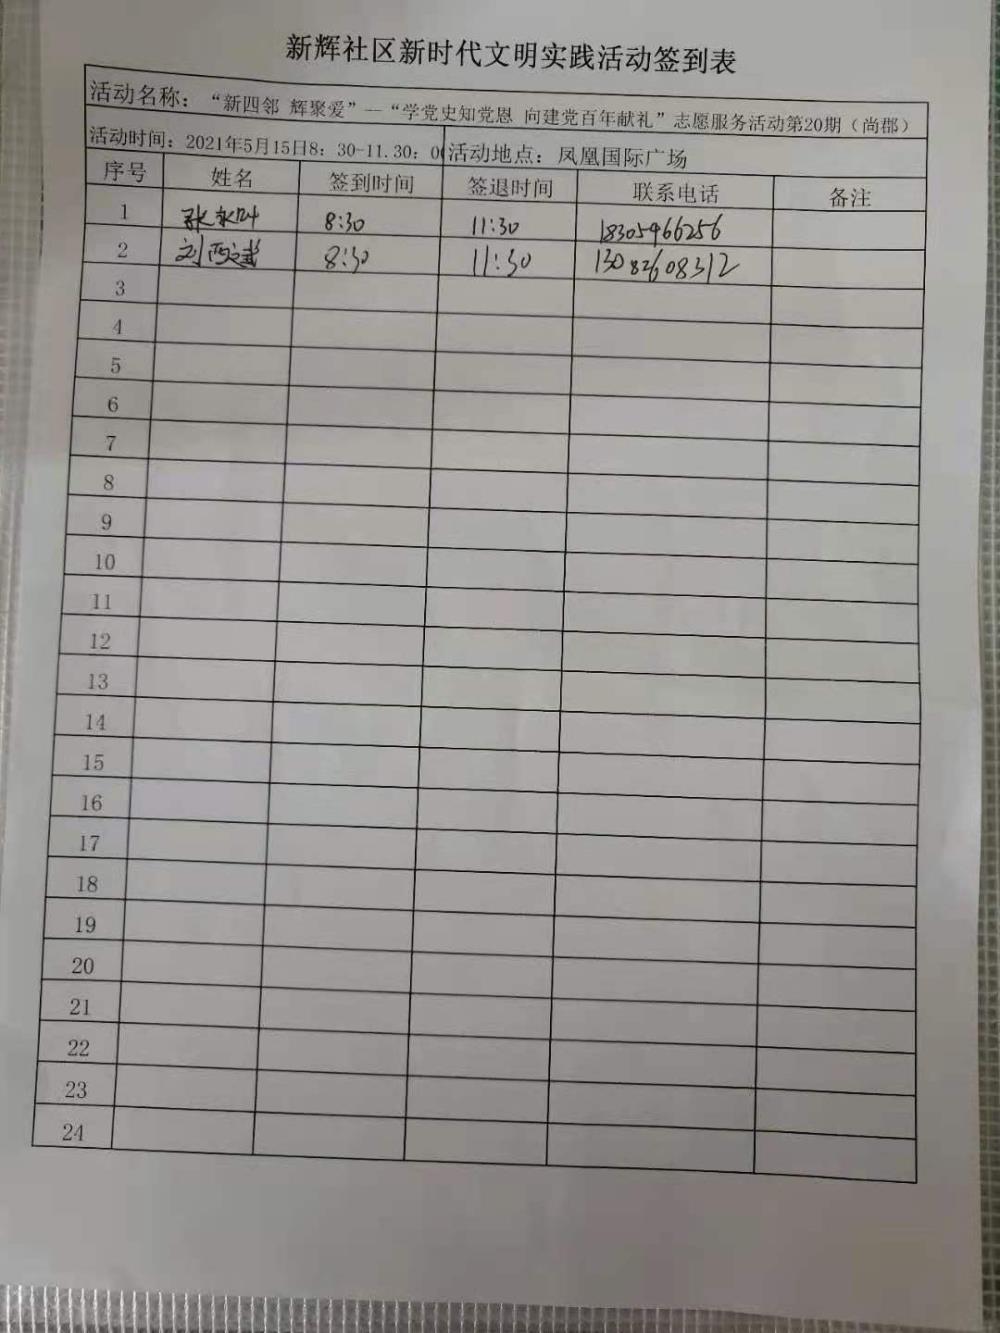 新辉社区新时代文明实践活动签到表
活动名称：“新四邻 辉聚爱”—“学党史知党恩 向建党百年献礼”志愿服务活动第20期（尚郡）
活动时间：2021年5月15日8：30-11.30：0 活动地点：凤凰国际广场
序号 姓名 签到时间 签退时间 联系电话 备注
1 张 8:30 11:30 18305966256
2 刘 8:30 11:30 13083608312
3
4
5
6
7
8
9
10
11
12
13
14
15
16
17
18
19
20
21
22
23
24